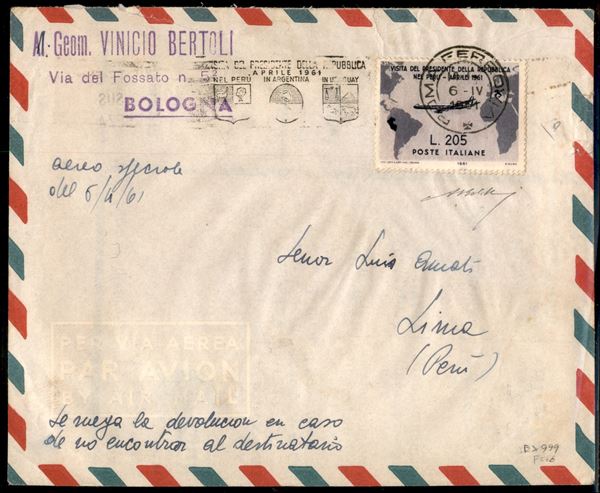 M. Geom. VINICIO BERTOLI
Via del Fossato n. 5
BOLOGNA
VISITA DEL PRESIDENTE DELLA REPUBBLICA
APRILE 1961
NEL PERÙ IN ARGENTINA IN URUGUAY
VISITA DEL PRESIDENTE DELLA REPUBBLICA
NEL PERU' - APRILE 1961
ROMA FERROVIA
6-IV
1961
L. 205
POSTE ITALIANE
1961
aereo speciale
del 6/4/61
Senor Luis Amati
Lima
(Perú)
PER VIA AEREA
PAR AVION
BY AIR MAIL
Se ruega la devolucion en caso
de no encontrar al destinatario